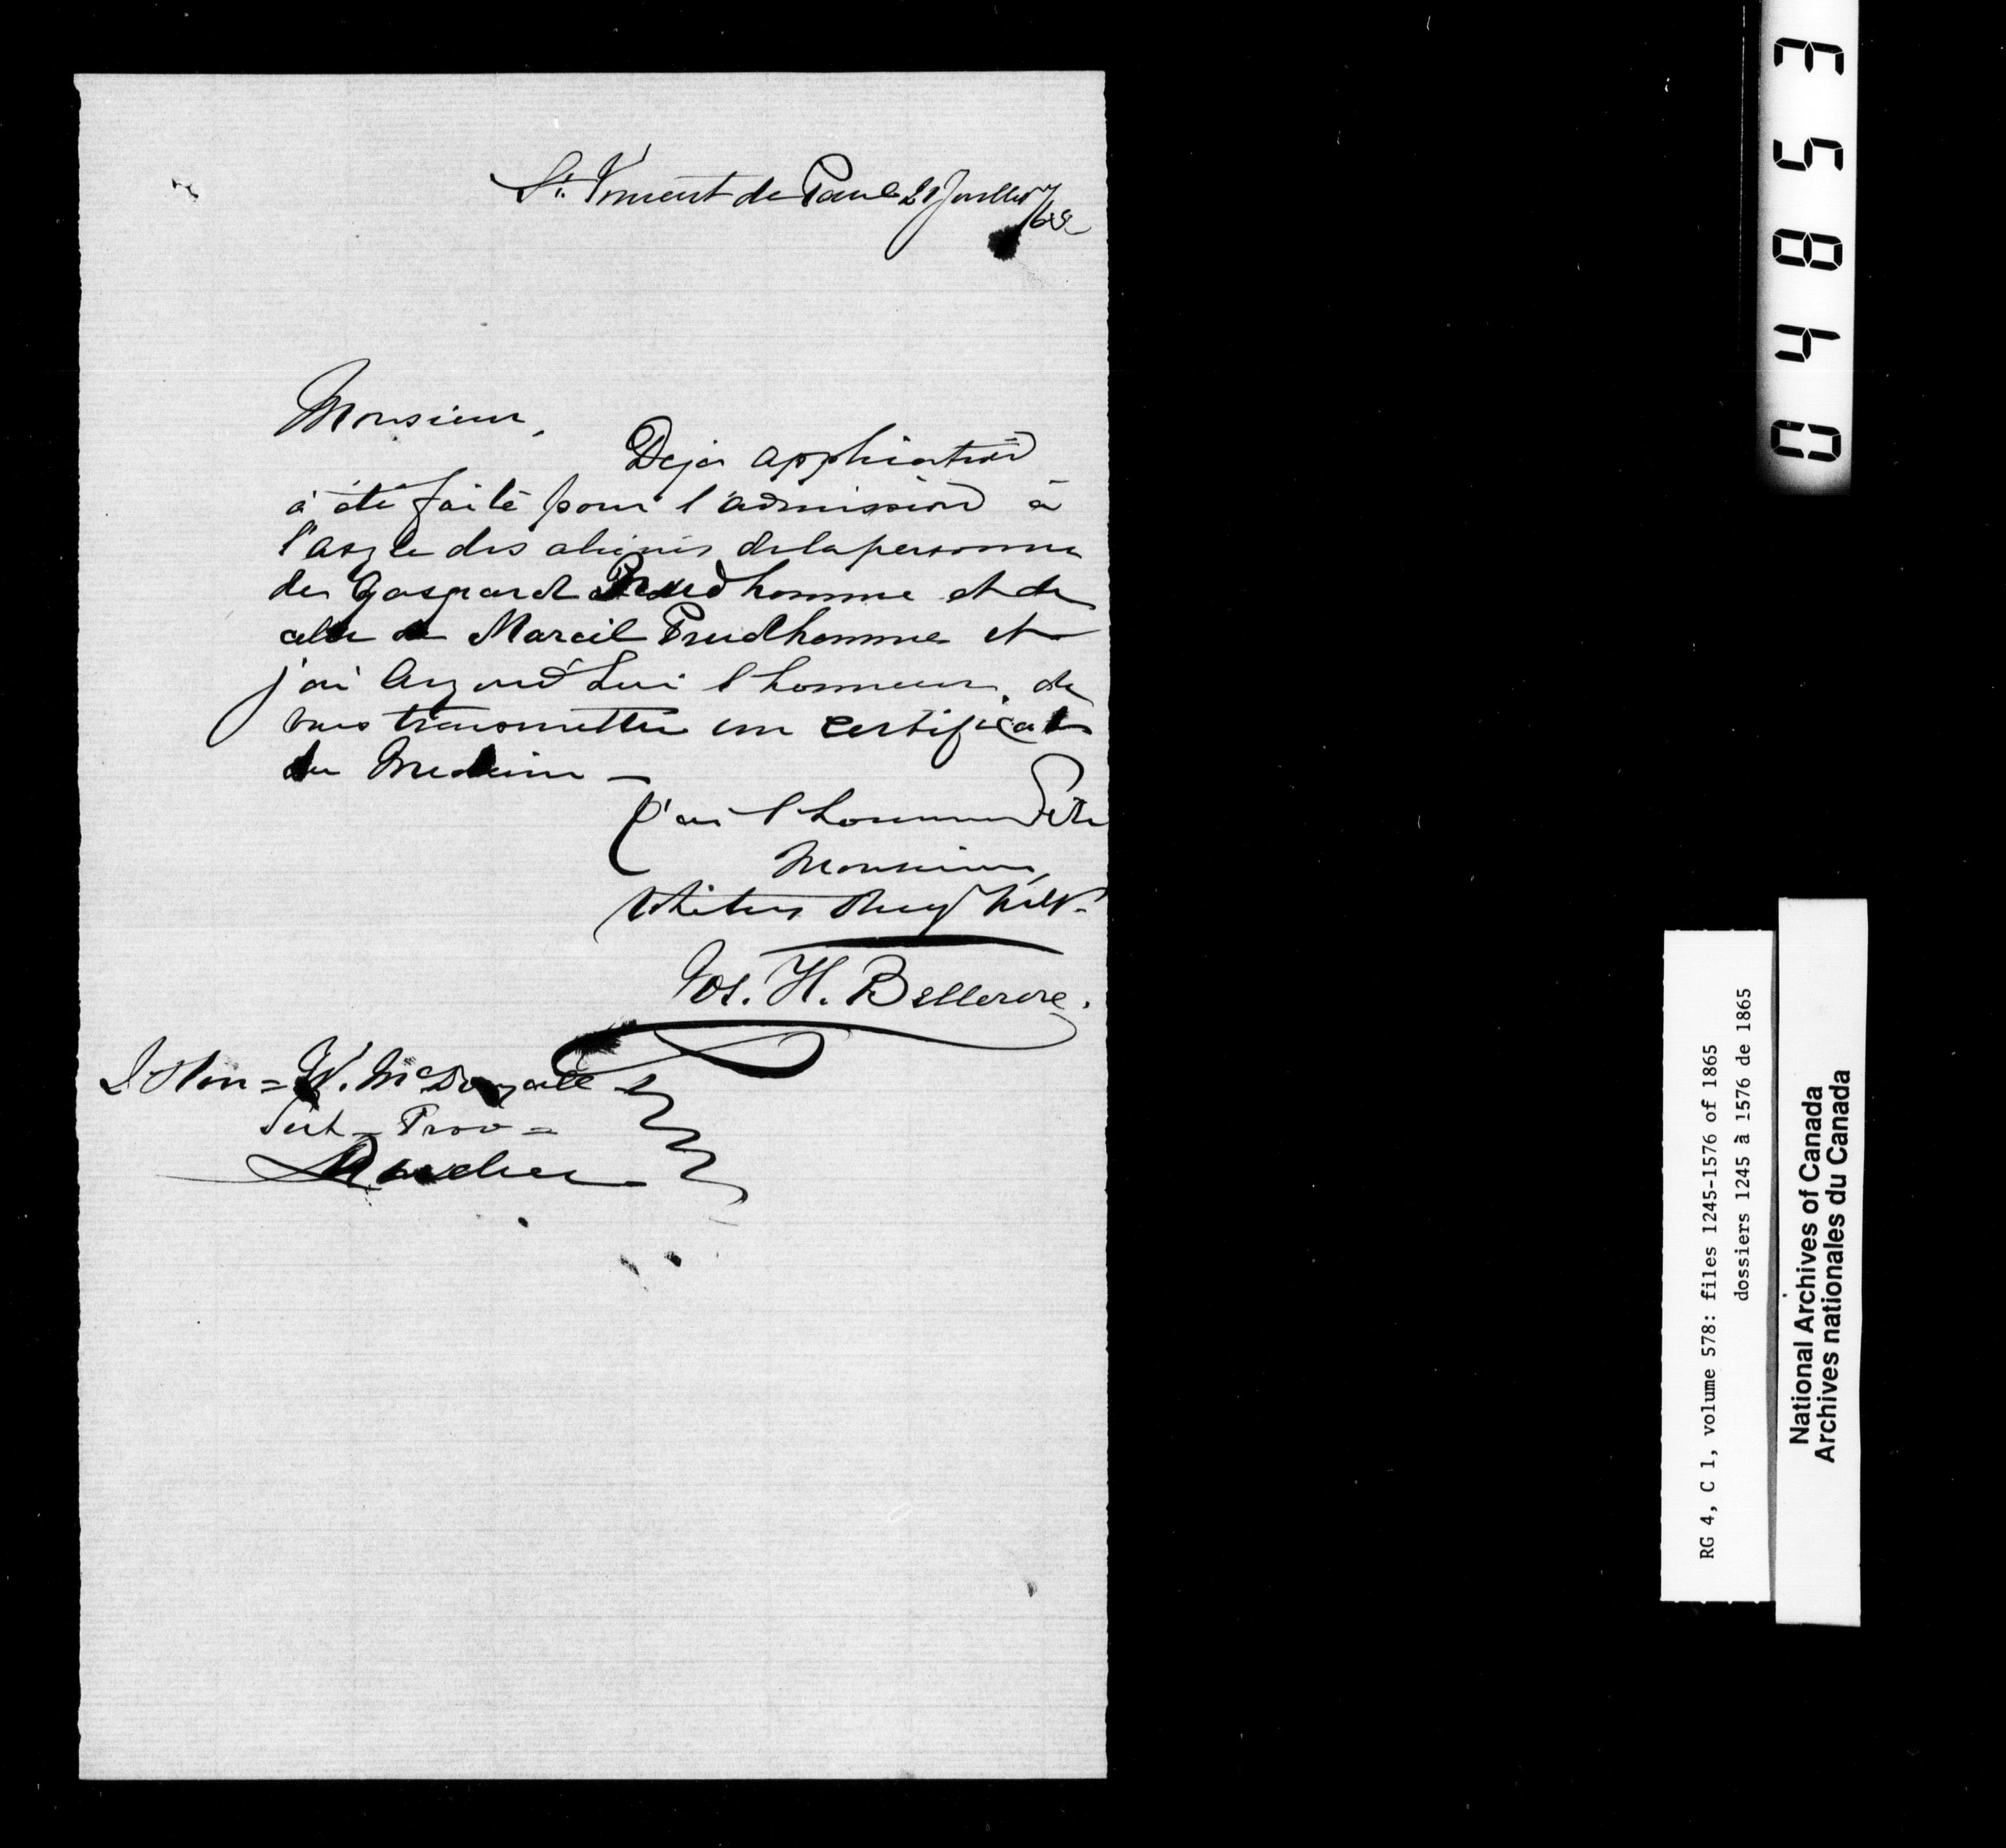 St. Vincent de Paul 21 Juillet
/65
Monsieur,
Deja application
à été faite pour l'admission à
l'asyle des aliénés de la personne
de Gaspard Prudhomme et de
celle de Marcil Prudhomme et
j'ai aujourd'hui l'honneur de
vous transmettre un certificat
du Medecin —
J'ai l'honneur d'etre
Monsieur,
Votre
Jos. H. Bellerose.
L'Hon = W. McDougall
Sect - Prov =
Quebec
RG 4, C 1, volume 578: files 1245-1576 of 1865
dossiers 1245 à 1576 de 1865
National Archives of Canada
Archives nationales du Canada
0 4 8 5 3